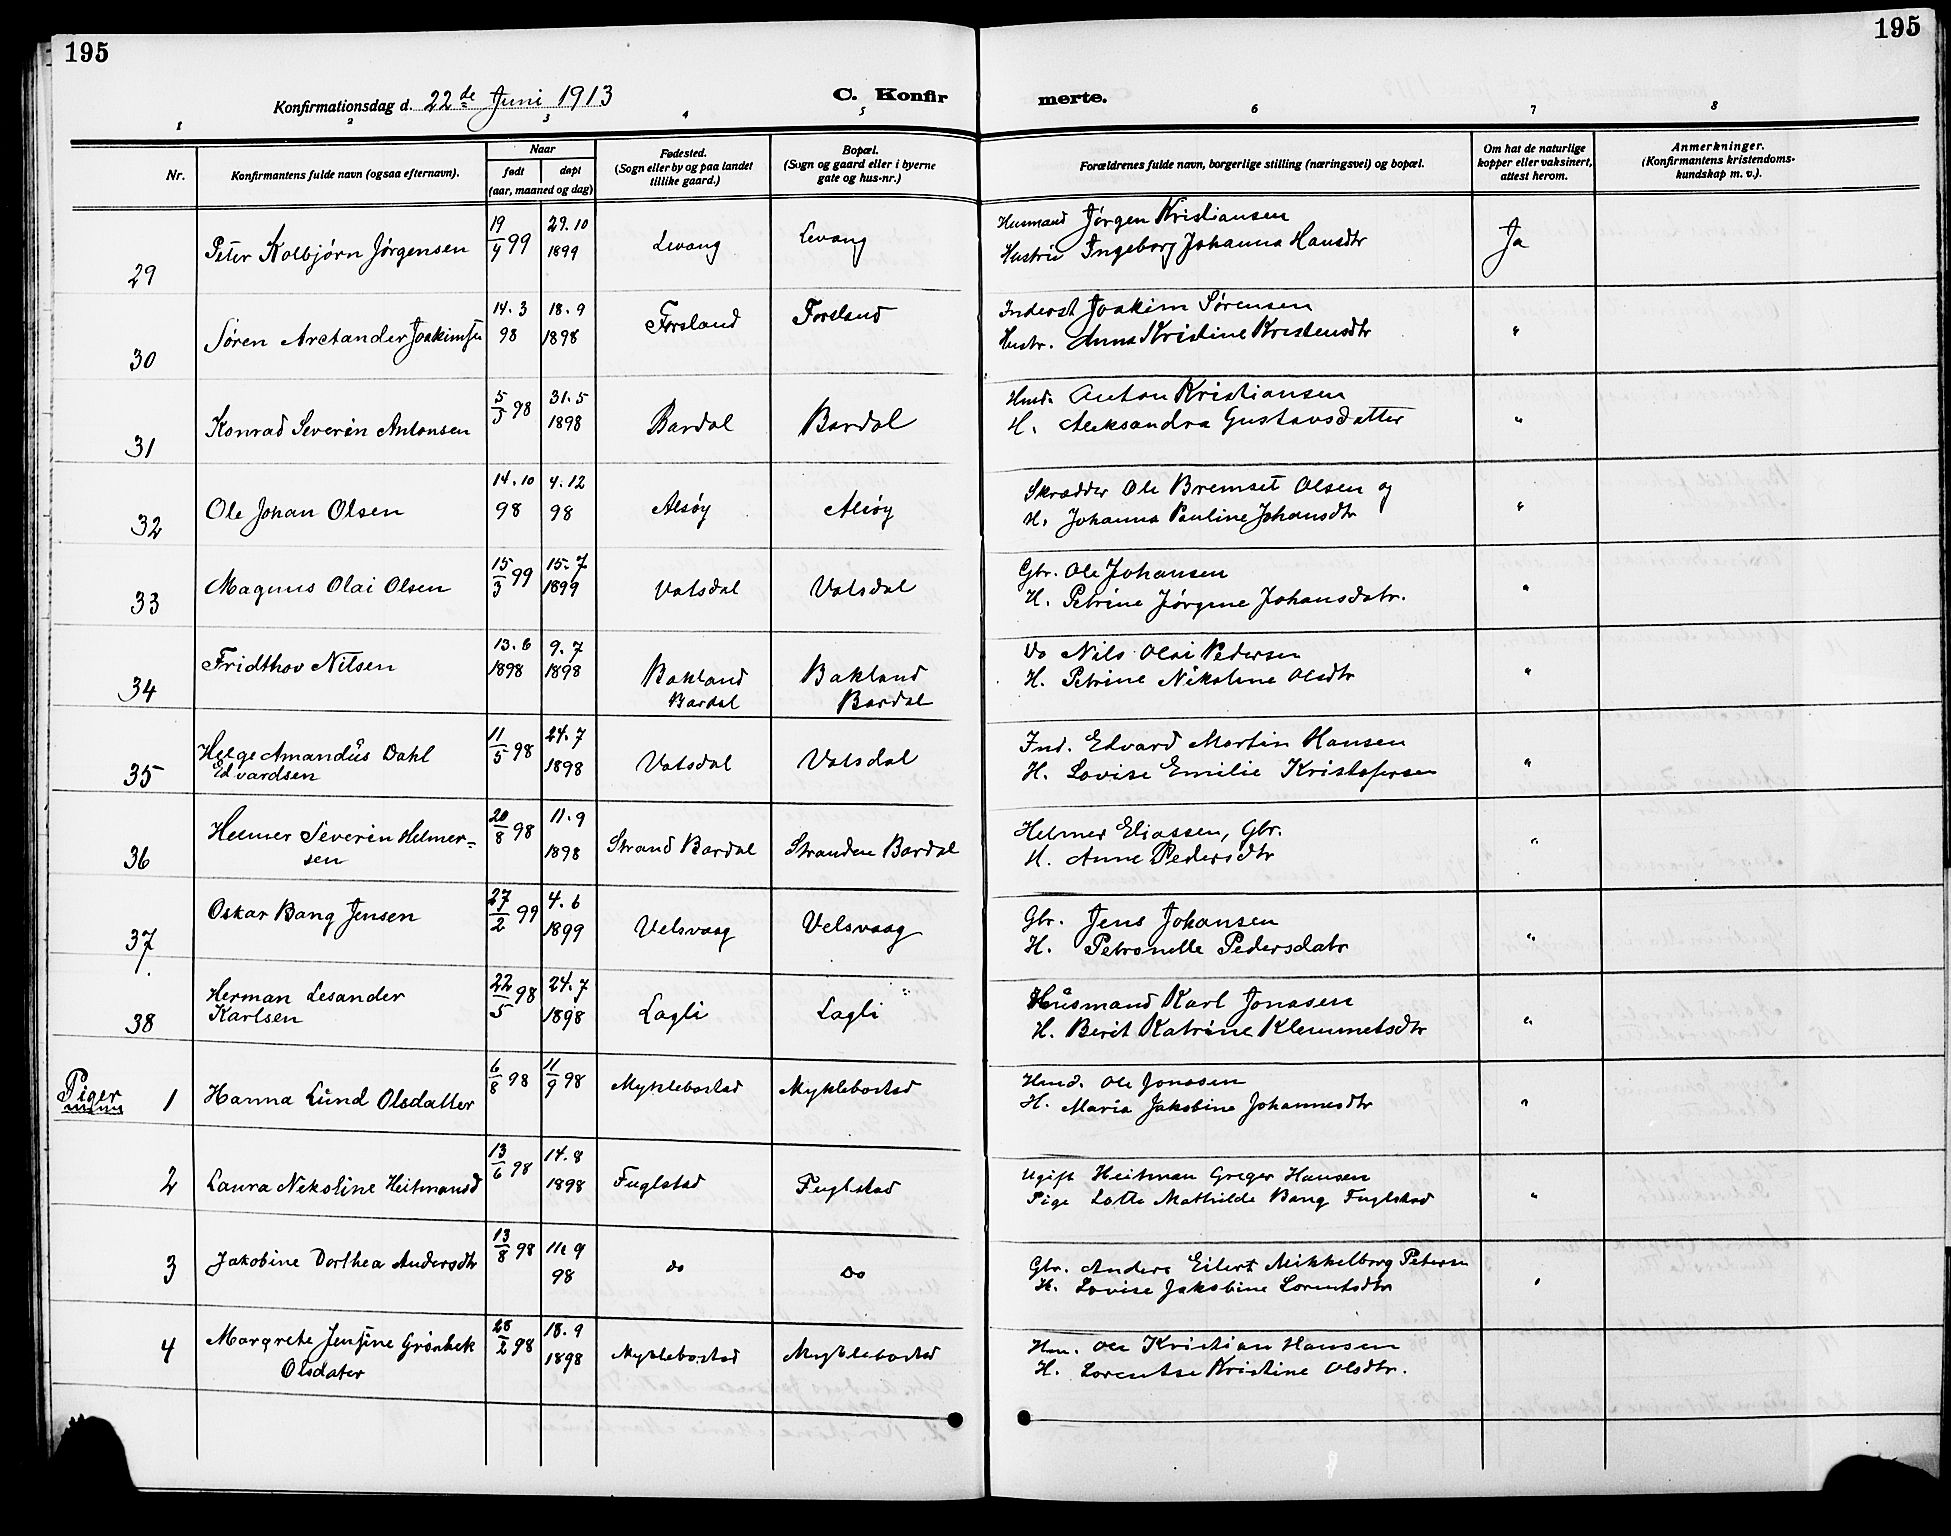 195
195
Konfirmationsdag d. 22de Juni 1913
C. Konfir
merte.
1 2 3 4 5 6 7 8
Nr.
Konfirmantens fulde navn (ogsaa efternavn).
Naar
født
døpt
(aar, maaned og dag)
Fødested.
(Sogn eller by og paa landet
tillike gaard.)
Bopæl.
(Sogn og gaard eller i byerne
gate og hus-nr.)
Forældrenes fulde navn, borgerlige stilling (næringsvei) og bopæl.
Om hat de naturlige
kopper eller vaksinert,
attest herom.
Anmerkninger.
(Konfirmantens kristendoms-
kundskap m. v.).
29 Peter Kolbjørn Jørgensen 19/4 99 29.10 1899 Levang Levang Husmand Jørgen Kristiansen
Hustru Ingeborg Johanna Hansdtr Ja
30 Søren Arctander Joakimsen 14.3 98 18.9 1898 Forsland Forsland Inderst Joakim Sørensen
Hustr. Anna Kristine Kristensdtr "
31 Konrad Severin Antonsen 5/3 98 31.5 1898 Bardal Bardal Hmd. Anton Kristiansen
H. Aleksandra Gustavsdatter "
32 Ole Johan Olsen 14.10 98 4.12 98 Alsøy Alsøy Skrædder Ole Bremset Olsen og
H. Johanna Pauline Johansdtr "
33 Magnus Olai Olsen 15/3 99 15.7 1899 Vatsdal Vatsdal Gbr. Ole Johansen
H. Petrine Jørgine Johansdatr. "
34 Fridthov Nilsen 13.6 1898 9.7 1898 Bakland Bardal Bakland Bardal Do Nils Olai Pedersen
H. Petrine Nikoline Olsdtr "
35 Helge Amandus Dahl
Edvardsen 11/5 98 24.7 1898 Vatsdal Vatsdal Ind. Edvard Martin Hansen
H. Lovise Emilie Kristofersen "
36 Helmer Severin Helmer=
sen 20/8 98 11.9 1898 Strand Bardal Stranden Bardal Helmer Eliassen, Gbr.
H. Anne Pedersdtr "
37 Oskar Bang Jensen 27/2 99 4.6 1899 Velsvaag Velsvaag Gbr. Jens Johansen
H. Petronelle Pedersdatr "
38 Herman Lesander
Karlsen 22/5 98 24.7 1898 Lagli Lagli Husmand Karl Jonasen
H. Berit Katrine Klemmetsdtr "
Piger
1 Hanna Lund Olsdatter 6/8 98 11/9 98 Myklebostad Myklebostad Hmd. Ole Jonassen
H. Maria Jakobine Johannesdtr "
2 Laura Nikoline Heitmansd 13/6 98 14.8 1898 Fuglstad Fuglstad Ugift Heitman Greger Hansen
Pige Lotte Mathilde Bang Fuglstad "
3 Jakobine Dorthea Andersdtr 13/8 98 11.9 98 do Do Gbr. Anders Eilert Mikkelborg Petersen
H. Lovise Jakobine Lorentsdtr "
4 Margrete Jensine Grønbek
Olsdater 28/2 98 18.9 1898 Myklebostad Myklebostad Hm. Ole Kristian Hansen
H. Lorentse Kristine Olsdtr.